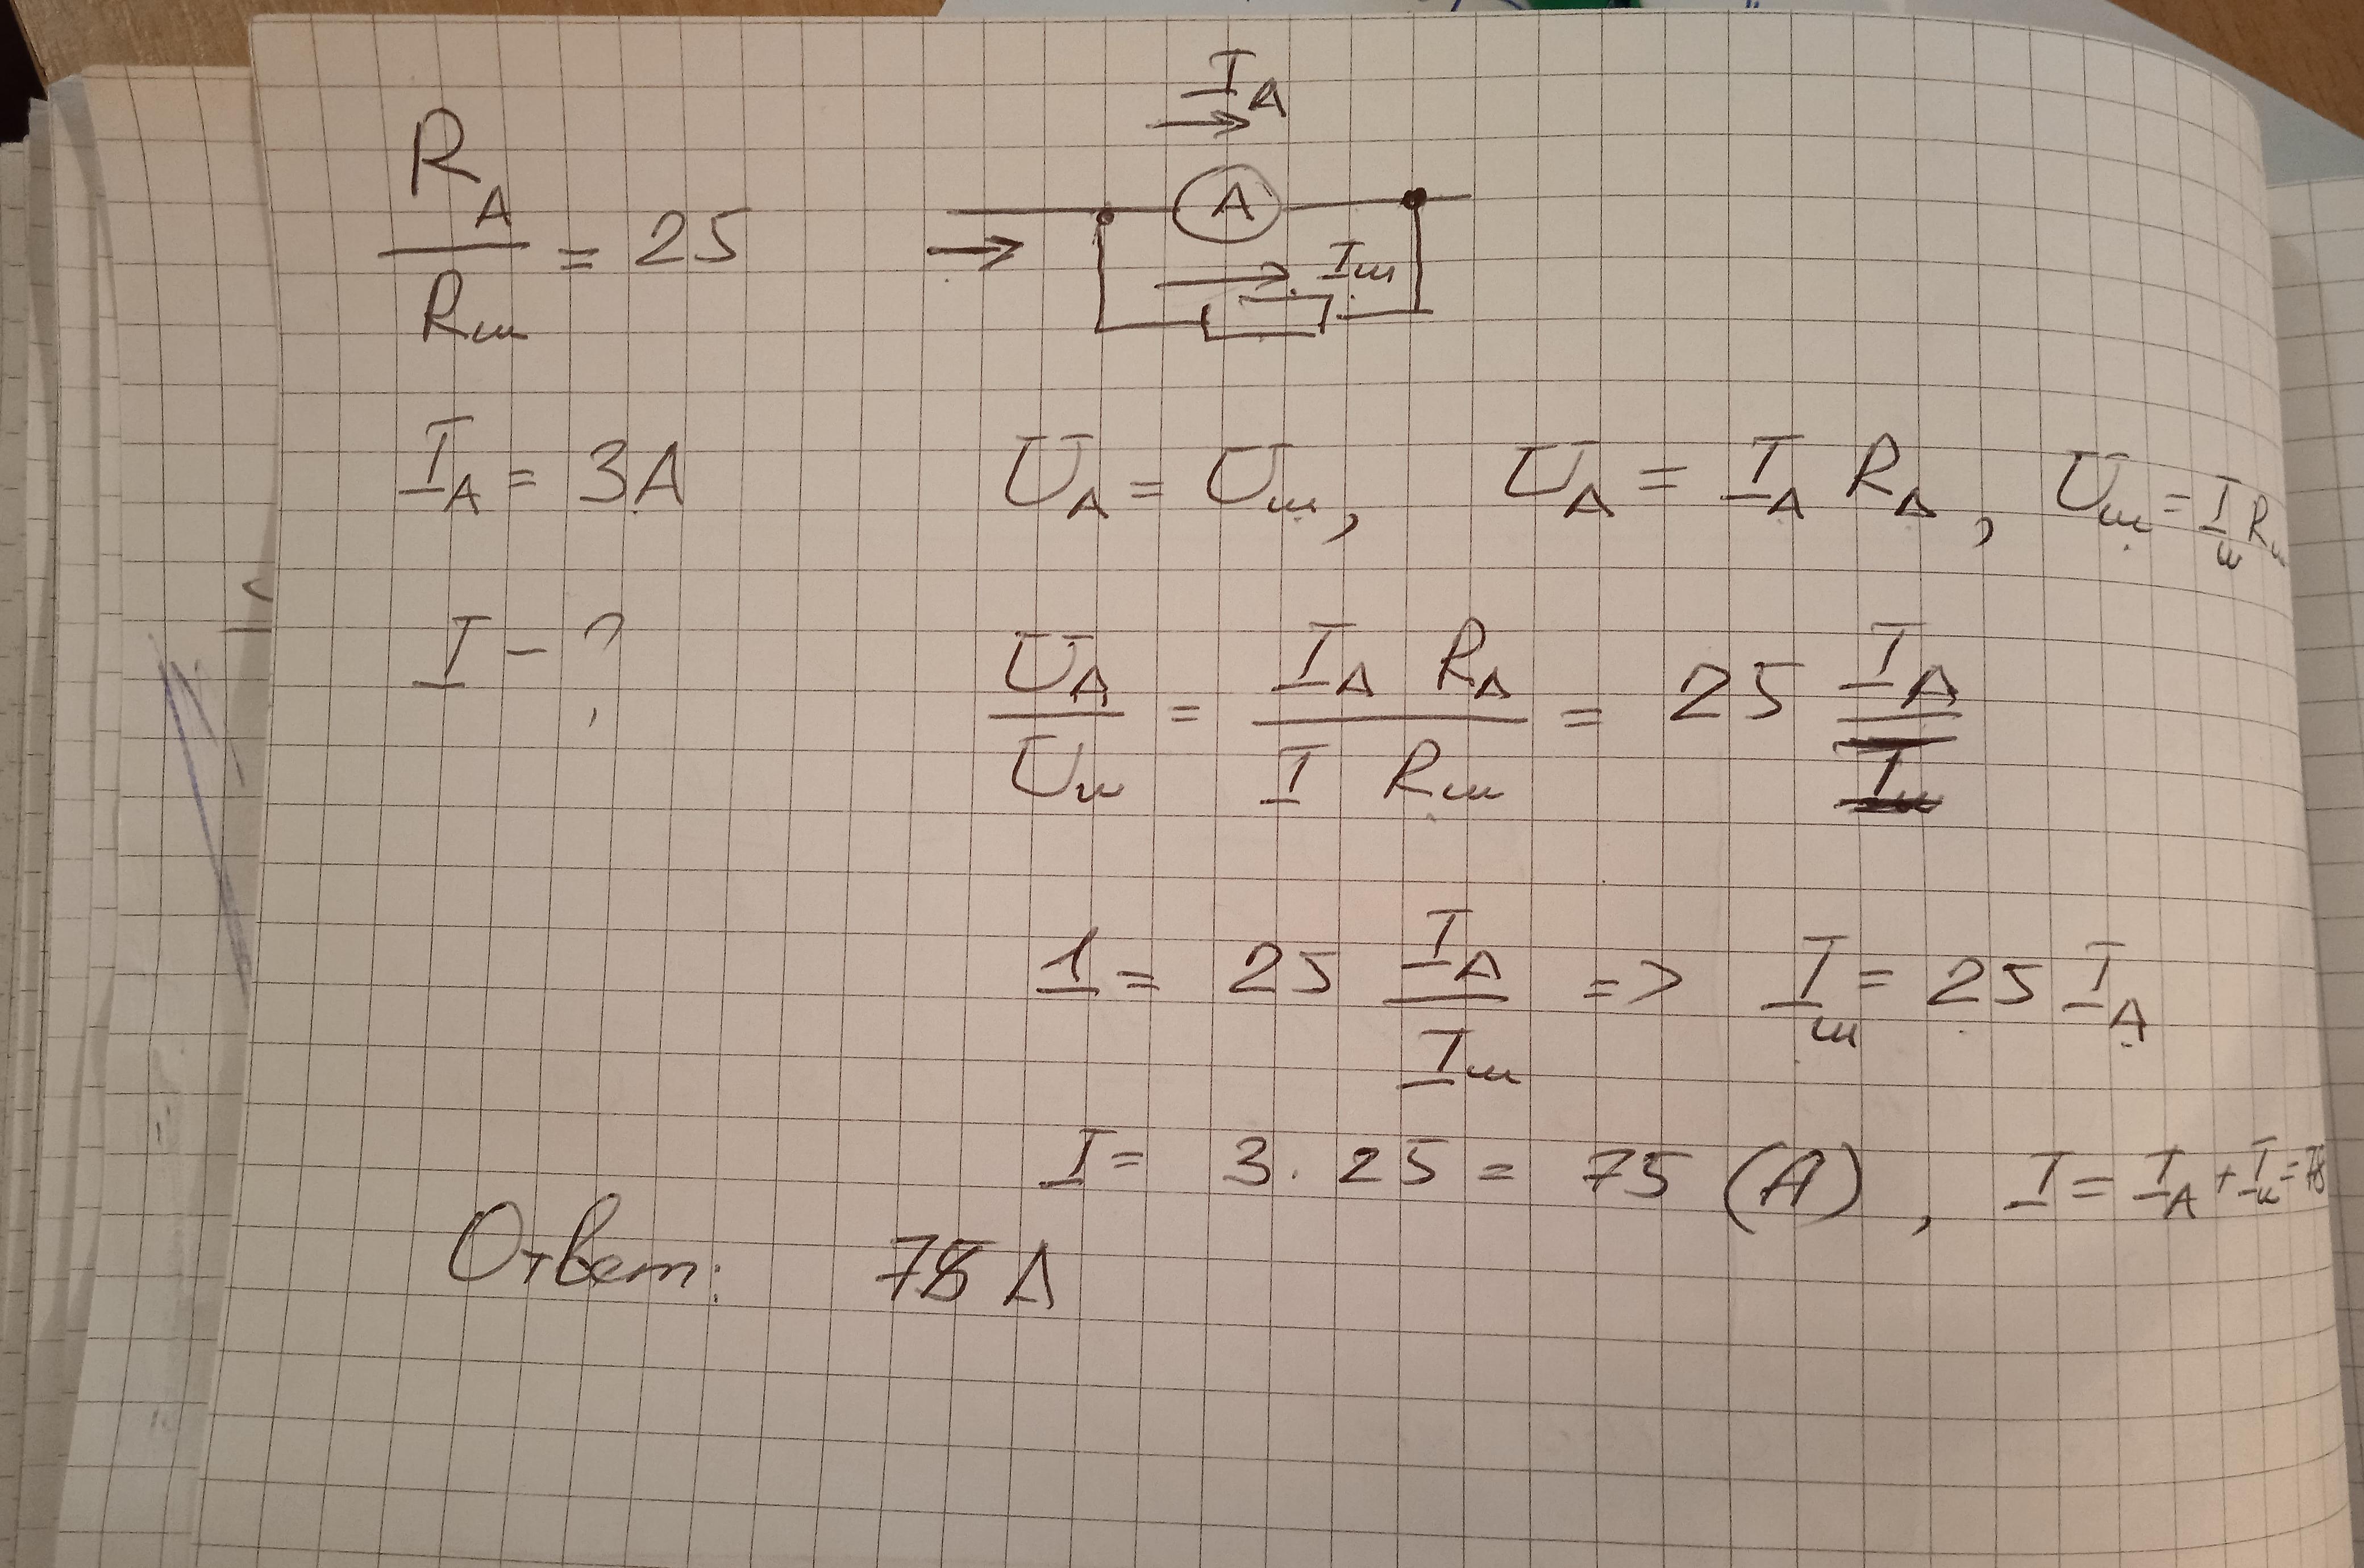 I_A
R_A / R_ш = 25 → A
I_ш
I_A = 3A U_A = U_ш, U_A = I_A R_A, U_ш = I_ш R_ш
I - ? U_A / U_ш = I_A R_A / I R_ш = 25 I_A / I_ш
1 = 25 I_A / I_ш => I_ш = 25 I_A
I = 3 · 25 = 75 (A), I = I_A + I_ш = 78
Ответ: 78 A